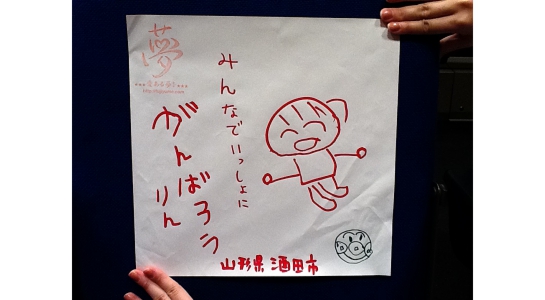 みんなでいっしょに
がんばろう
りん
山形県 酒田市
夢